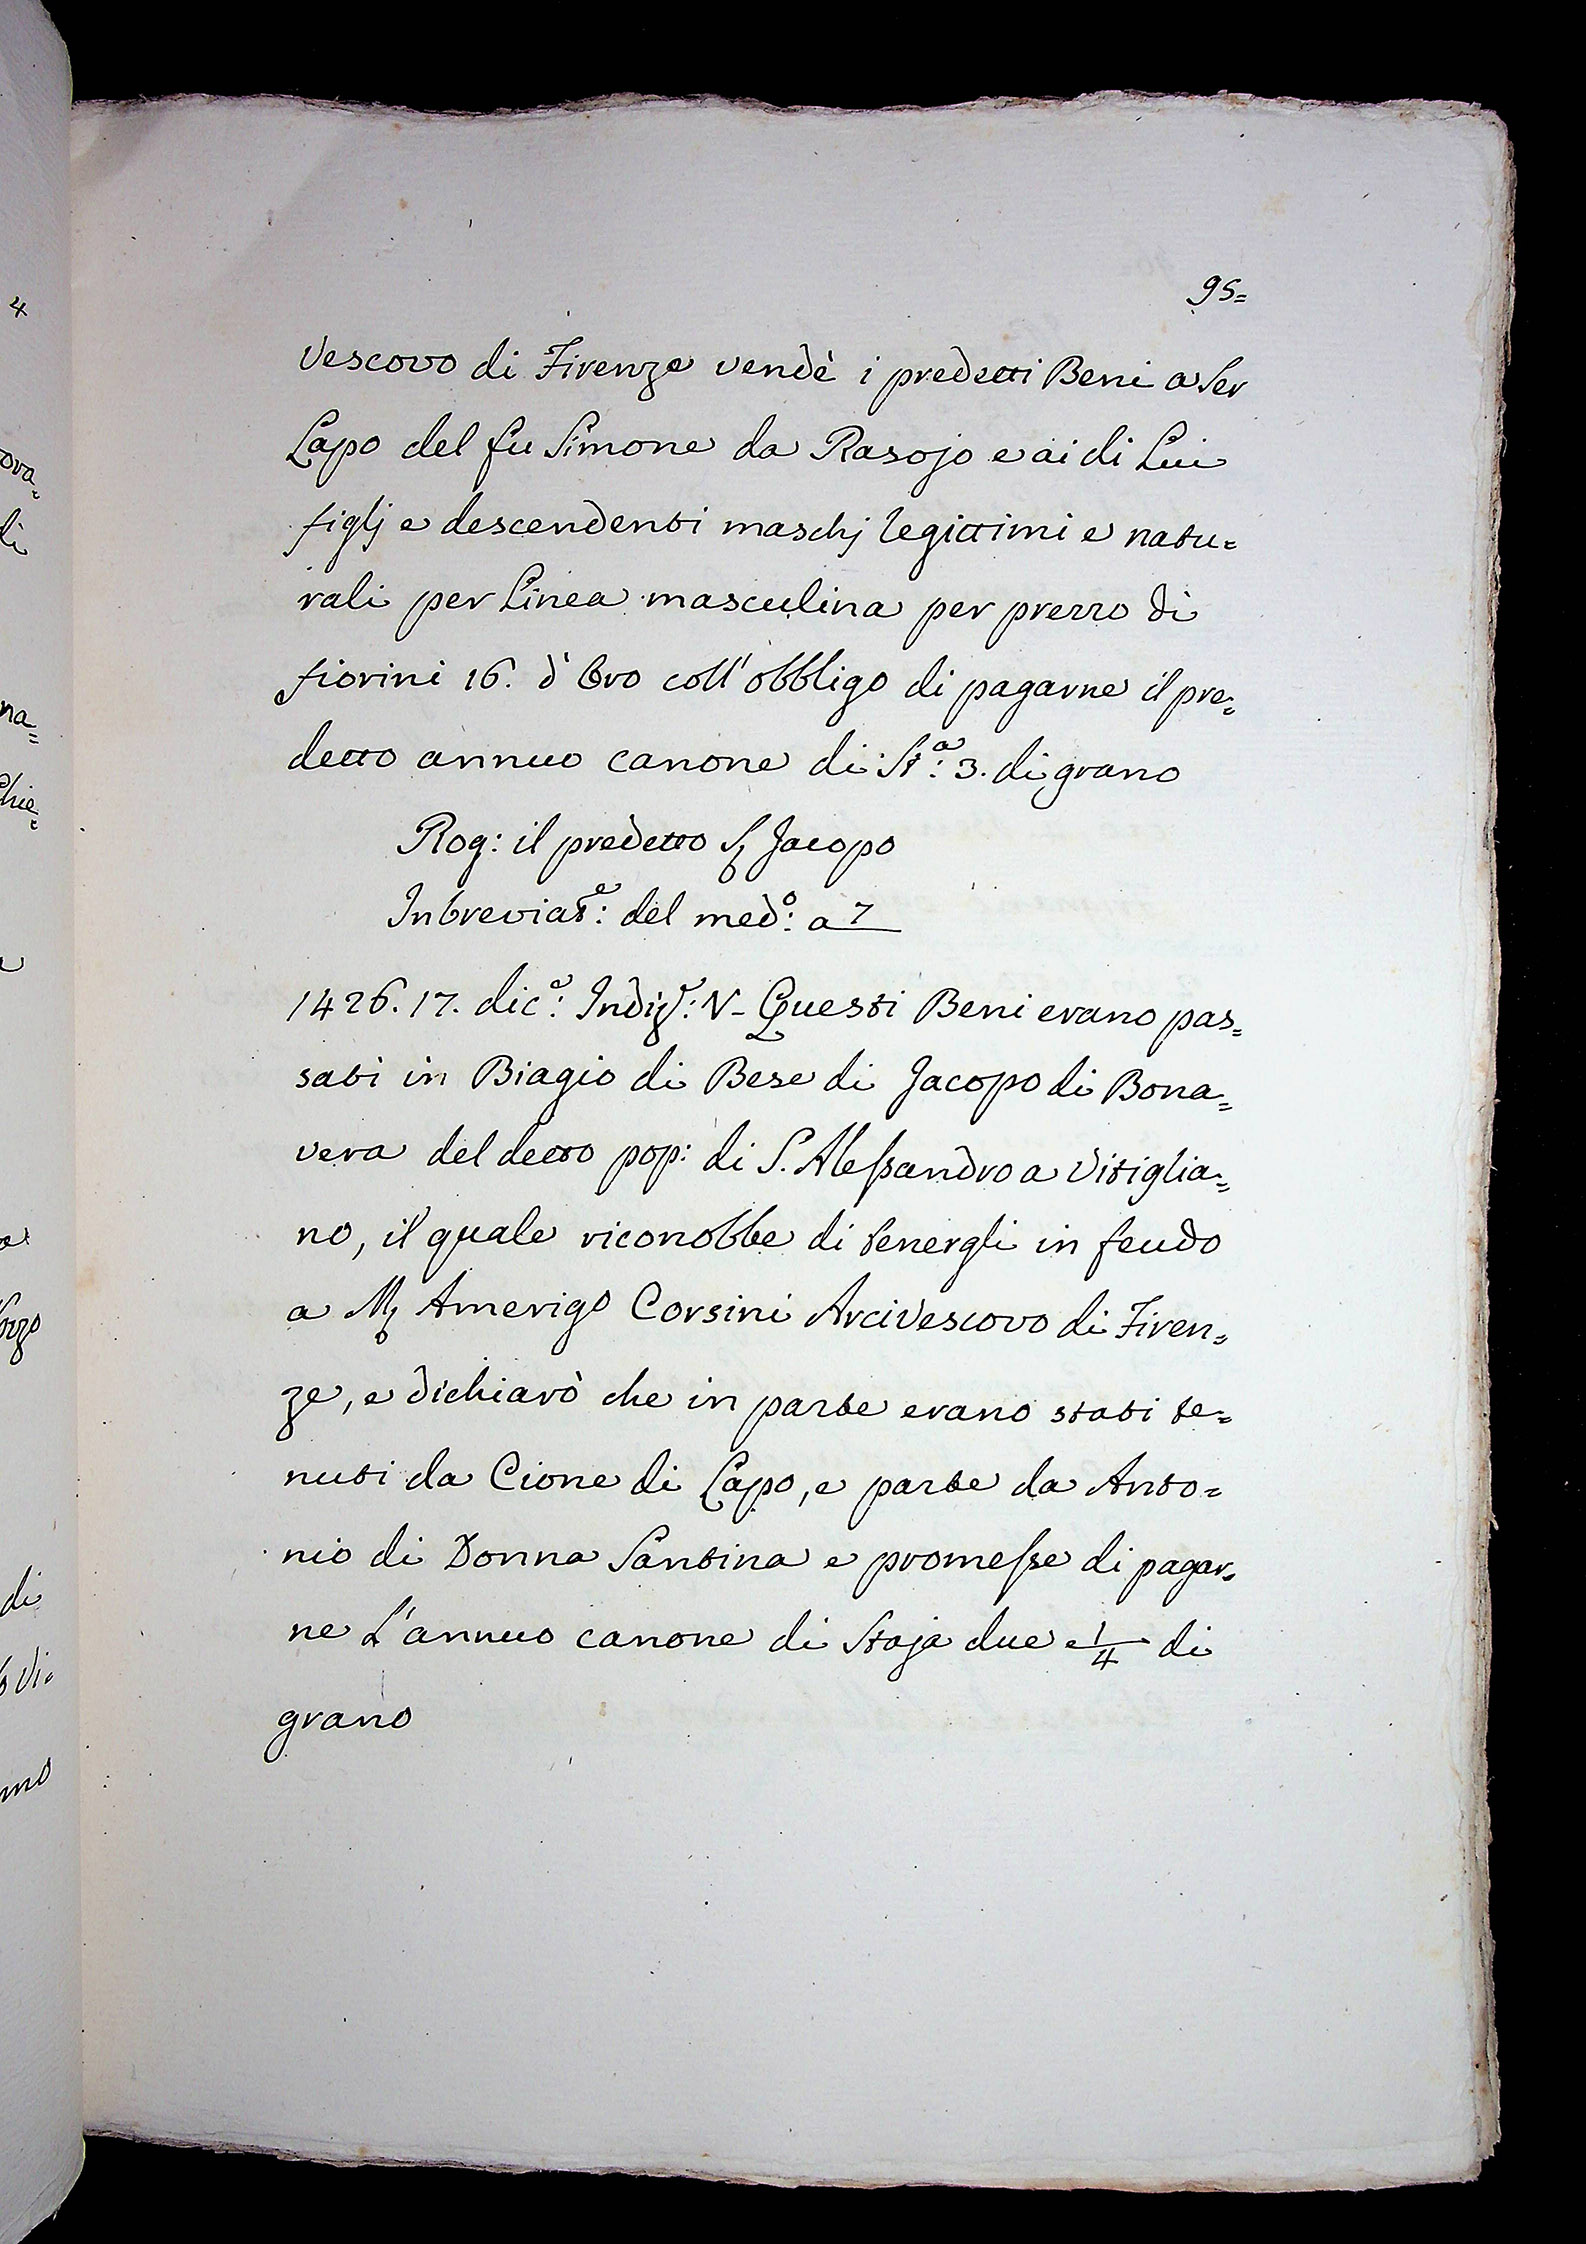 95=
Vescovo di Firenze vendè i predetti Beni a Ser
Lapo del fu Simone da Rasojo e ai di Lui
figlj e descendenti maschj legittimi e natu=
rali per Linea masculina per prezzo di
fiorini 16. d'Oro coll'obbligo di pagarne il pre=
detto annuo canone di St.ª: 3. di grano
Rog: il predetto S. Jacopo
Inbreviat.e: del med.o: a 7
1426. 17. dic.e: Indiz.e: V- Questi Beni erano pas=
sati in Biagio di Bese di Jacopo di Bona=
vera del detto pop: di S. Alessandro a Vitiglia=
no, il quale riconobbe di tenergli in feudo
a M. Amerigo Corsini Arcivescovo di Firen=
ze, e dichiarò che in parte erano stati te=
nuti da Cione di Lapo, e parte da Anto=
nio di Donna Santina e promesse di pagar=
ne L'annuo canone di Staja due e 1/4 di
grano
4
ova=
di
na=
Chie=
di
Vi=